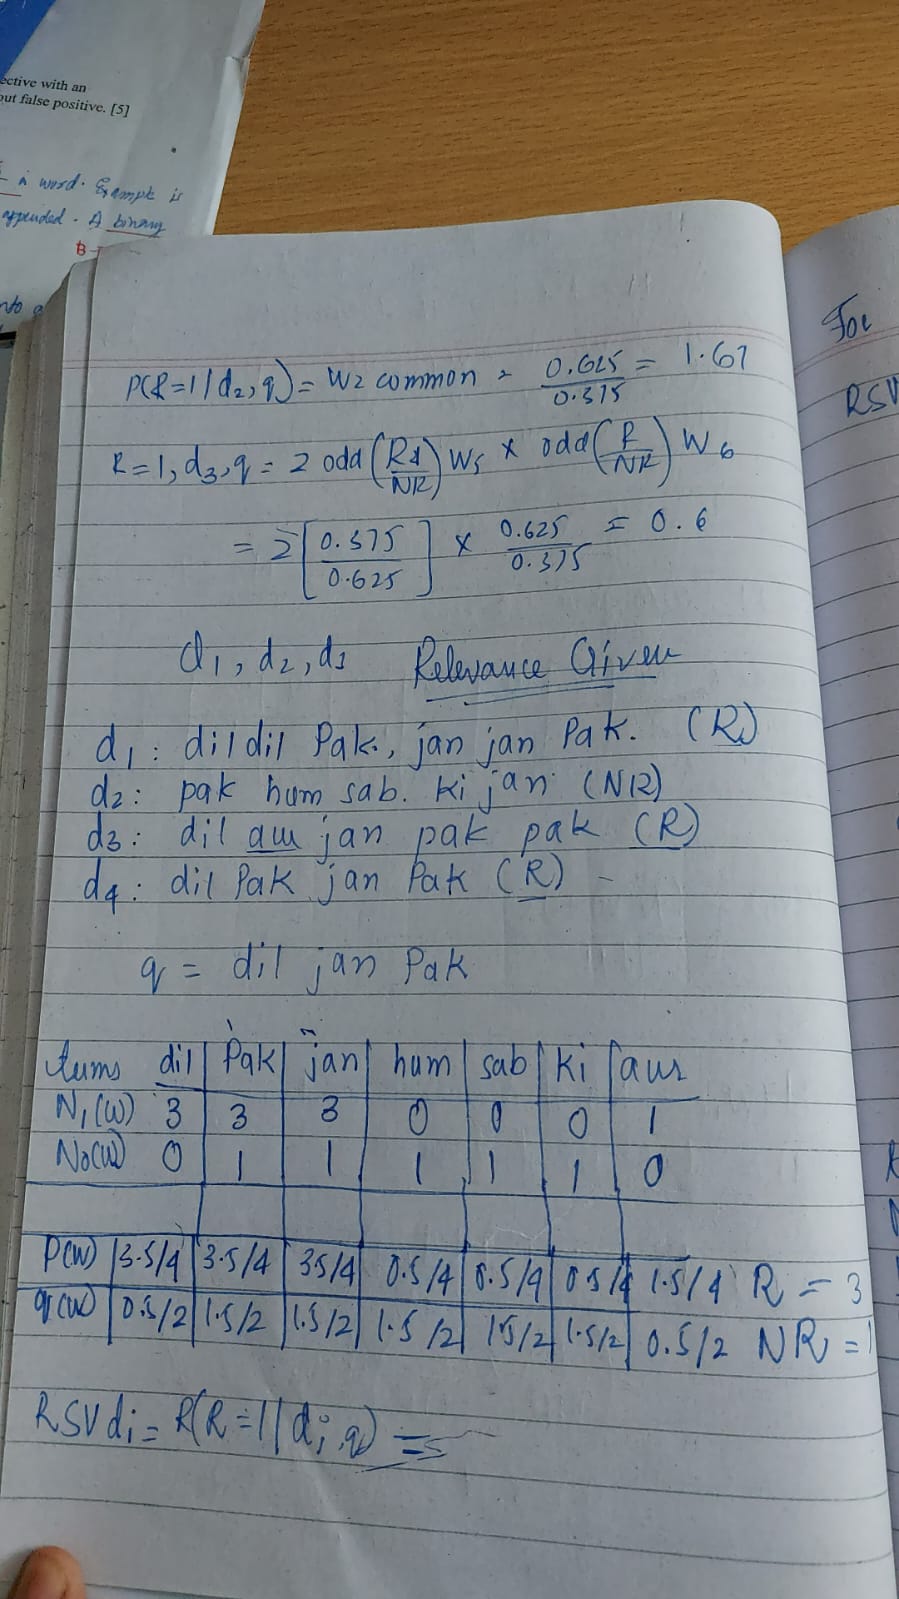 ective with an
out false positive. [5]
a word. Example is
appended. A binary
B-
nto a
P(R=1/d2,q) = W2 common = 0.625/0.375 = 1.67
R=1,d3,q = 2 odd (Rd/NR) W5 × odd (R/NR) W6
= 2 [0.375/0.625] × 0.625/0.375 = 0.6
d1, d2, d3 Relevance Given
d1: dil dil Pak., jan jan Pak. (R)
d2: pak hum sab. ki jan (NR)
d3: dil aur jan pak pak (R)
d4: dil Pak jan Pak (R) -
q = dil jan Pak
terms dil Pak jan hum sab ki aur
N1(w) 3 3 3 0 0 0 1
No(w) 0 1 1 1 1 1 0
P(w) 3.5/4 3.5/4 35/4 0.5/4 0.5/4 0.5/4 1.5/4 R = 3
q(w) 0.5/2 1.5/2 1.5/2 1.5/2 1.5/2 1.5/2 0.5/2 NR = 1
RSVdi = R(R=1/di,q) =
For
RSV